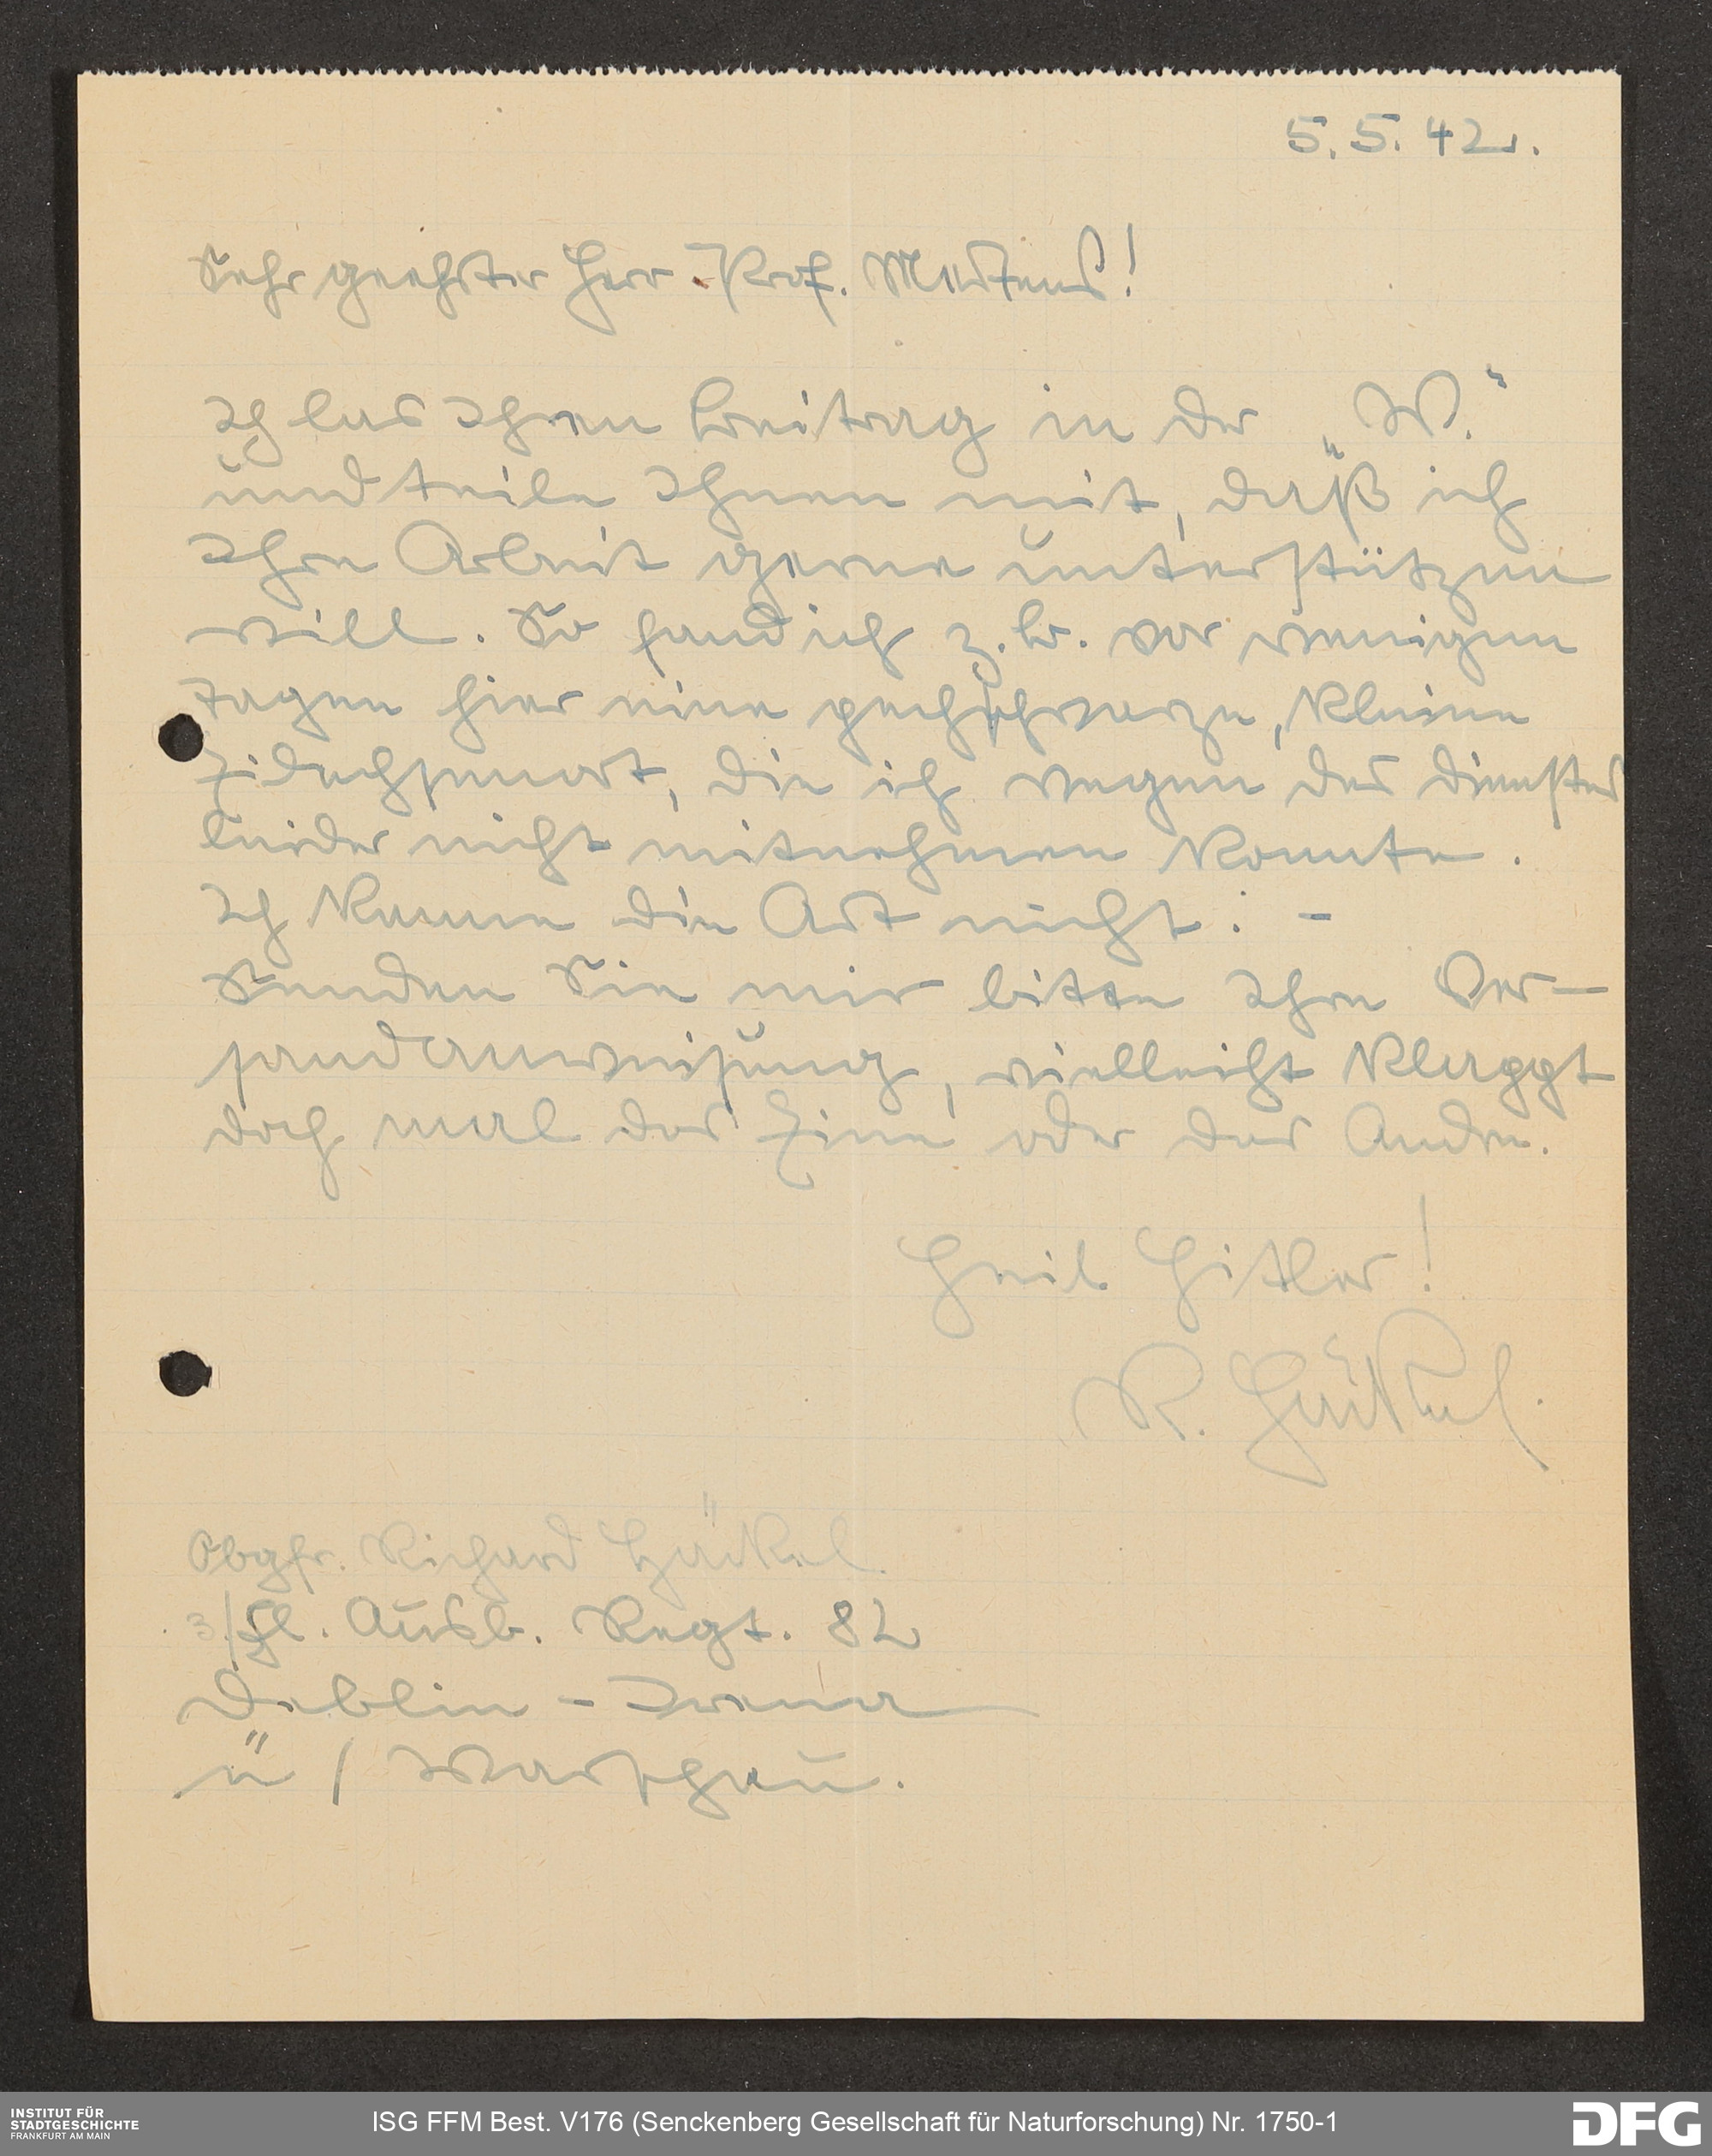 5.5.42.
Sehr geehrter Herr Prof. Mertens!
Ich las Ihren Beitrag in der „W.“
und teile Ihnen mit, daß ich
Ihre Arbeit gerne unterstützen
will. So fand ich z.B. vor wenigen
Tagen hier eine pechschwarze, kleine
Eidechsenart, die ich wegen des Dienstes
leider nicht mitnehmen konnte.
Ich kenne die Art nicht: -
Senden Sie mir bitte Ihre Ver-
sandanweisung, vielleicht klappt
doch mal das Eine oder das Andre.
Heil Hitler!
R. Häckel.
Obgfr. Richard Häckel.
3/Fl. Ausb. Regt. 82
Deblin - Irena
ü / Warschau.
INSTITUT FÜR
STADTGESCHICHTE
FRANKFURT AM MAIN
ISG FFM Best. V176 (Senckenberg Gesellschaft für Naturforschung) Nr. 1750-1
DFG